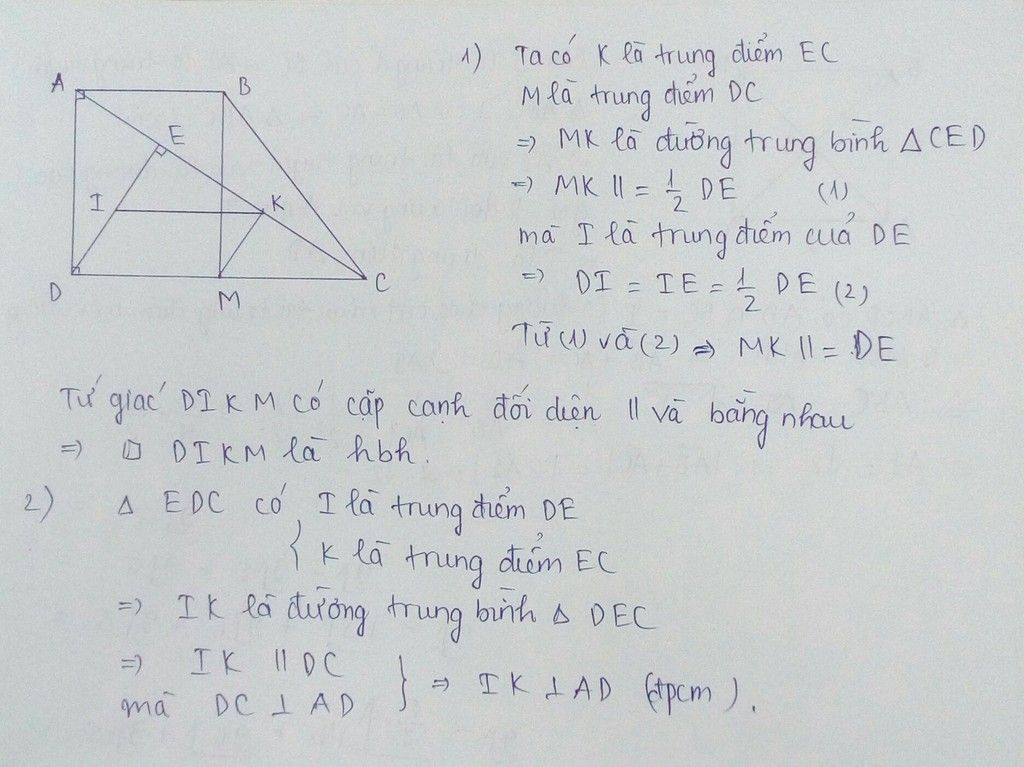 A
B
E
I
K
D
M
C
1) Ta có K là trung điểm EC
M là trung điểm DC
=> MK là đường trung bình △CED
=> MK || = 1/2 DE (1)
mà I là trung điểm của DE
=> DI = IE = 1/2 DE (2)
Từ (1) và (2) => MK || = DE
Tứ giác DIKM có cặp cạnh đối diện || và bằng nhau
=> □ DIKM là hbh.
2) △ EDC có { I là trung điểm DE
K là trung điểm EC
=> IK là đường trung bình △ DEC
=> IK || DC
mà DC ⊥ AD } => IK ⊥ AD (đpcm).